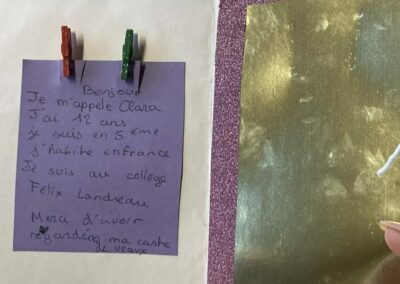 Bonjour
Je m'appele Clara
J'ai 12 ans
je suis en 5 éme
j'habite enfrance
Je suis au collège
Félix Landreau
Merci d'avoir
regardées ma carte
de veaux